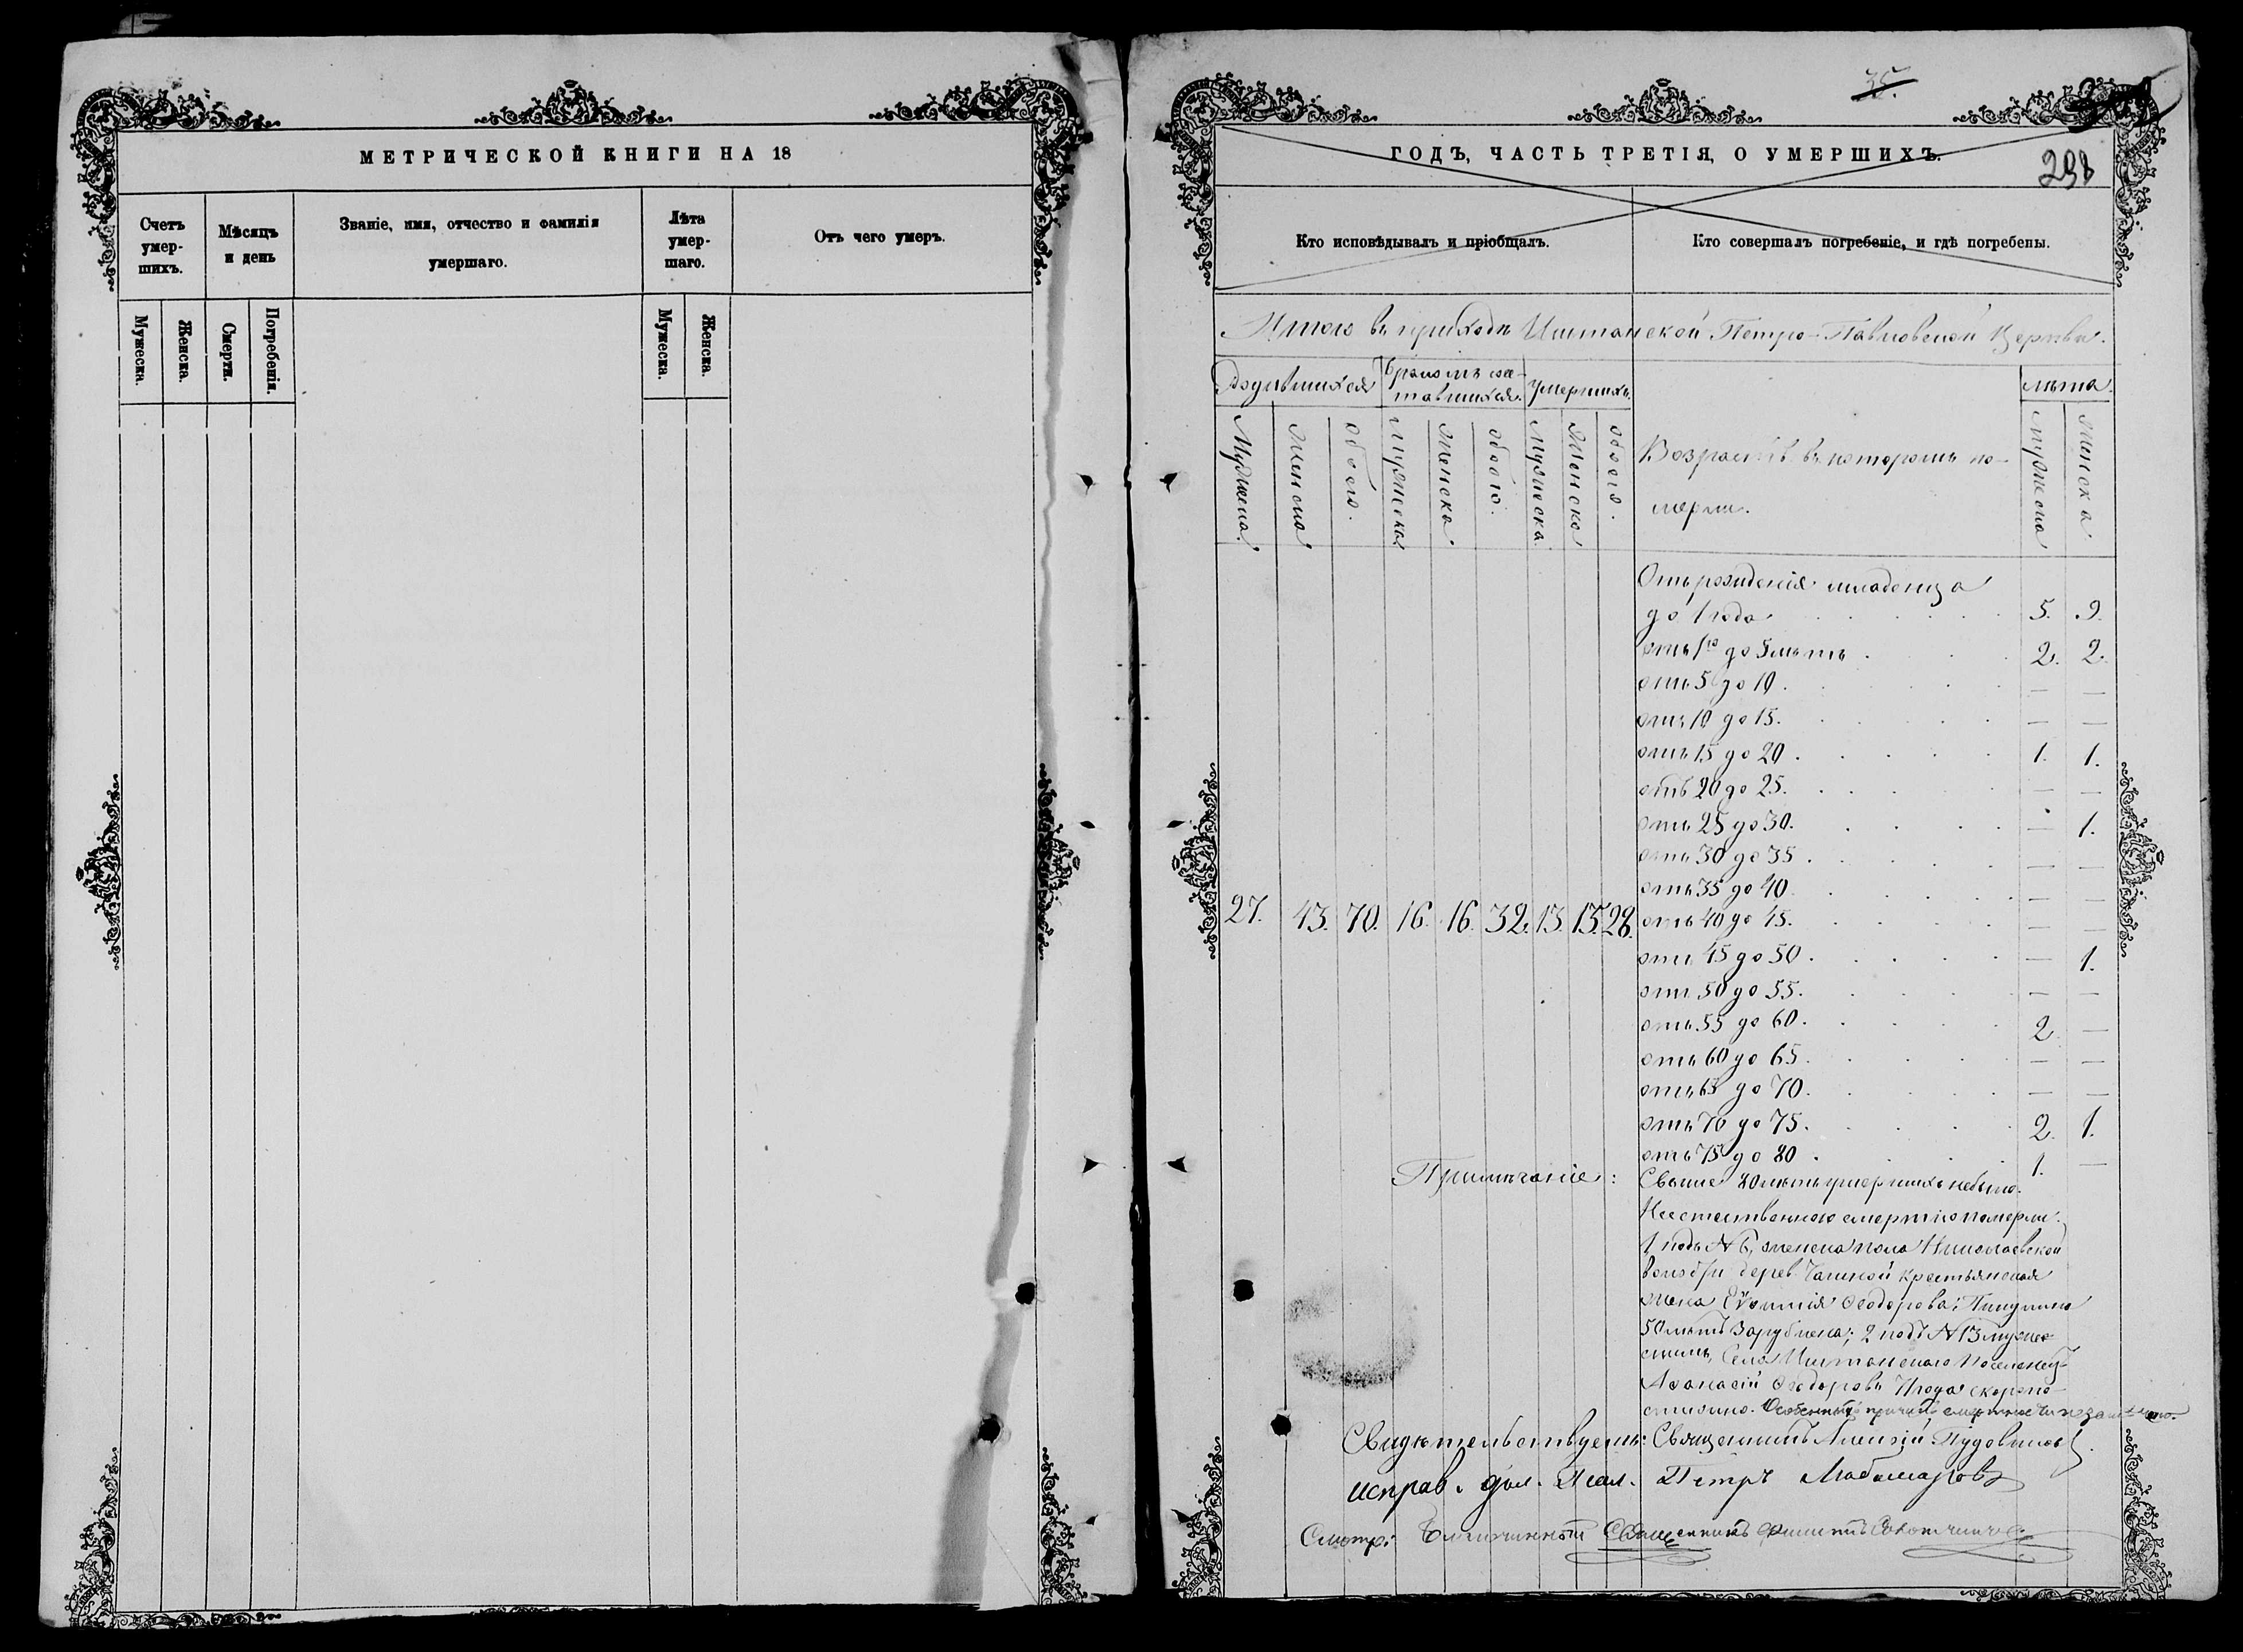 МЕТРИЧЕСКОЙ КНИГИ НА 18
Счетъ умер-шихъ.
Мѣсяцъ и день
Званіе, имя, отчество и фамилія умершаго.
Лѣта умер-шаго.
Отъ чего умеръ.
Мужеска.
Женска.
Смерти.
Погребенія.
Мужеска.
Женска.
35.
ГОДЪ, ЧАСТЬ ТРЕТІЯ, О УМЕРШИХЪ.
Кто исповѣдывалъ и пріобщалъ.
Кто совершалъ погребеніе, и гдѣ погребены.
Итого въ приходѣ Иштанской Петро-Павловской Церкви.
Родившихся
Бракомъ соче-
тавшихся.
умершихъ.
лѣта.
Мужеска.
Женска
обоего.
Мужеска
Женска
обоего.
Мужеска.
Женска
обоего.
Возрастъ въ которомъ по-
мерли.
Мужеска
Женска
Отъ рожденія младенца
до 1 года 5. 9.
отъ 1го до 5 лѣтъ 2. 2.
отъ 5 до 10. — —
отъ 10 до 15. — —
отъ 15 до 20. 1. 1.
отъ 20 до 25. — —
отъ 25 до 30. — 1.
отъ 30 до 35. — —
отъ 35 до 40. — —
27. 43. 70. 16. 16. 32. 13. 15. 28. отъ 40 до 45. — —
отъ 45 до 50. — 1.
отъ 50 до 55. — —
отъ 55 до 60. 2 —
отъ 60 до 65. — —
отъ 65 до 70. — —
отъ 70 до 75. 2. 1.
отъ 75 до 80. 1. —
Примѣчаніе: Свыше 80 лѣтъ умершихъ небыло.
Неестественною смертію померли:
1, подъ № 6, женска пола Николаевской
волости дерев. крестьянская
жена Ѳеодорова
50 лѣтъ зарублена; 2 подъ № 13 мужес-
Села Иштанскаго поселенецъ
Аѳанасій Ѳеодоровъ скоропо-
стижно. Особенныхъ причинъ смертности незамѣчено.
Свидѣтельствуемъ: Священникъ Алексій Пудовиковъ.
исправ. дол. Псал. Петръ
Смотр: Благочинный Священникъ